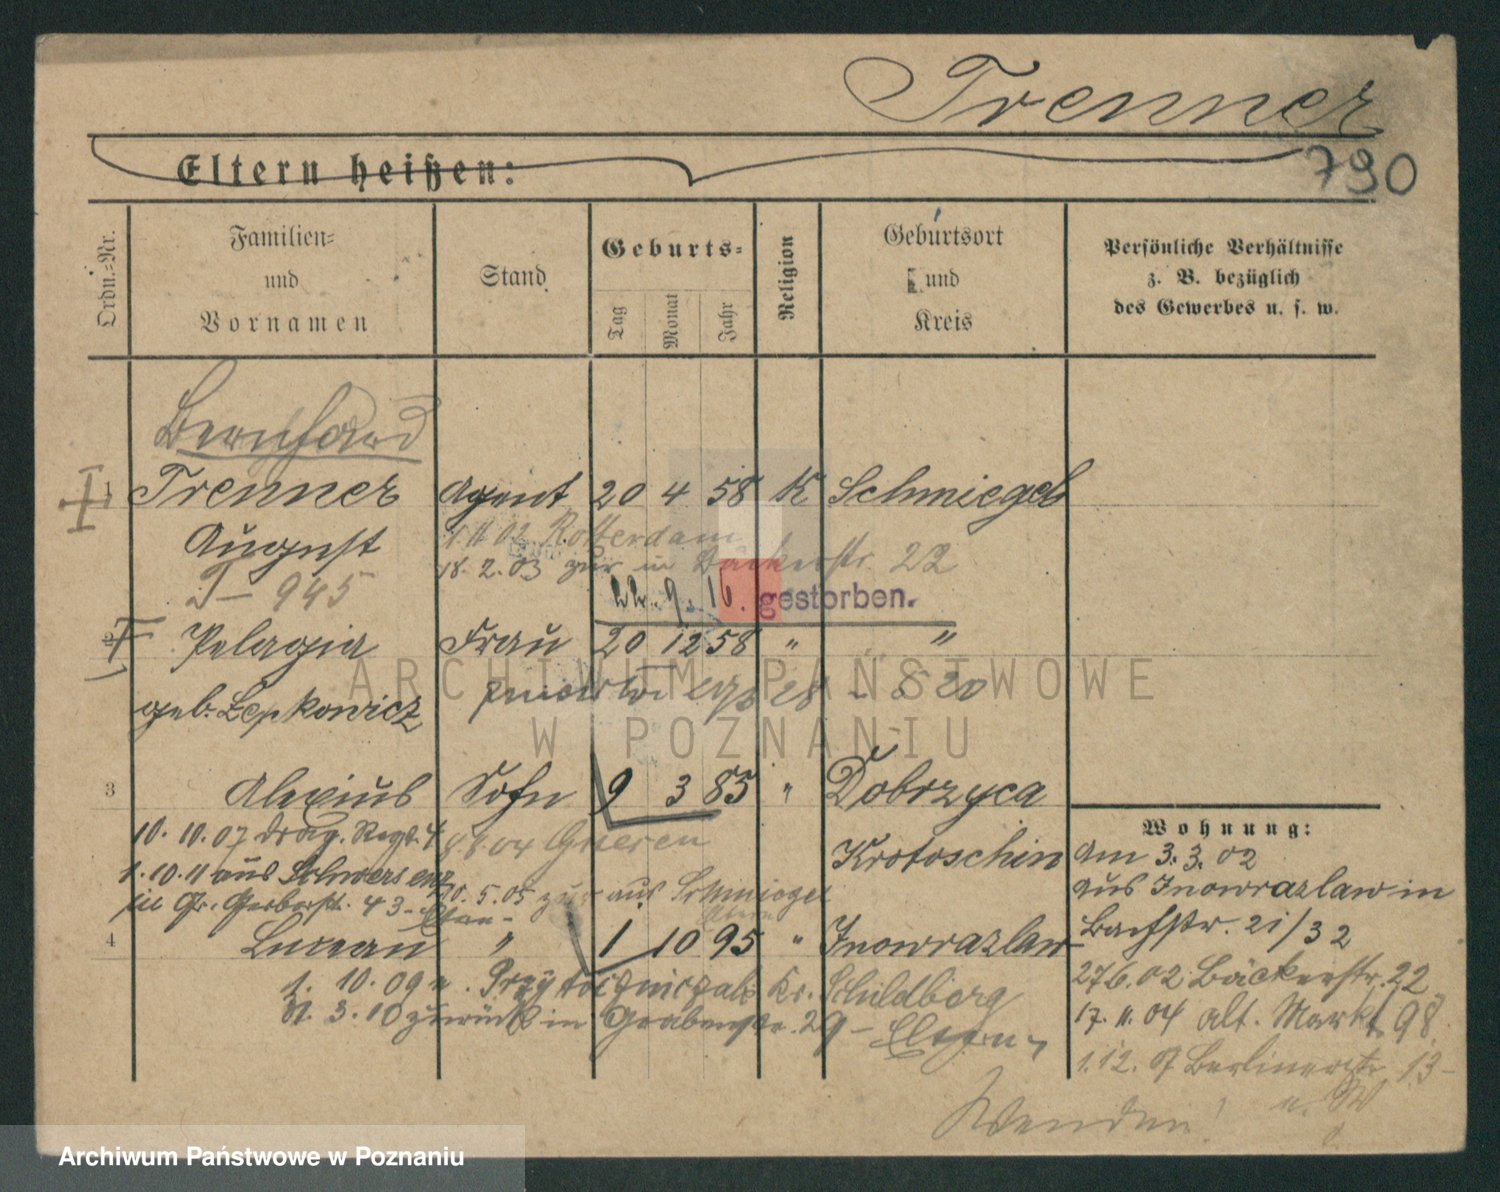 Trenner
790
Eltern heißen:
Ordn.-Nr.
Familien-
und
Vornamen
Stand
Geburts-
Tag
Monat
Jahr
Religion
Geburtsort
und
Kreis
Persönliche Verhältnisse
z. B. bezüglich
des Gewerbes u. s. w.
Bernhard
1 Trenner Agent 20 4 58 K Schmiegel
August 1.11.02 Rotterdam
18.2.03 zur in Bäckerstr. 22
T- 945
22. 9. 16. gestorben.
Pelagia Frau 20 12 58 " "
geb. Lepkowicz
ARCHIWUM PAŃSTWOWE
W POZNANIU
3 Alexius Sohn 9 3 85 " Dobrzyca
10.10.07 Drag. Regt. 4
Krotoschin
1.10.11 aus Schwersenz
20.5.05 zur aus Schmiegel
in Gr. Gerberstr. 43-
4 Lucean " 1 10 95 " Inowrazlaw
1. 10. 09 n. Kr. Schildberg
3. 10 zurück in Grabenstr. 29- Eltern
Wohnung:
Am 3.3.02
aus Inowrazlaw in
Bachstr. 21/32
27.6.02 Bäckerstr. 22
17.11.04 alt. Markt 98
1.12.07 Berlinerstr. 13-
Wenden!
Archiwum Państwowe w Poznaniu